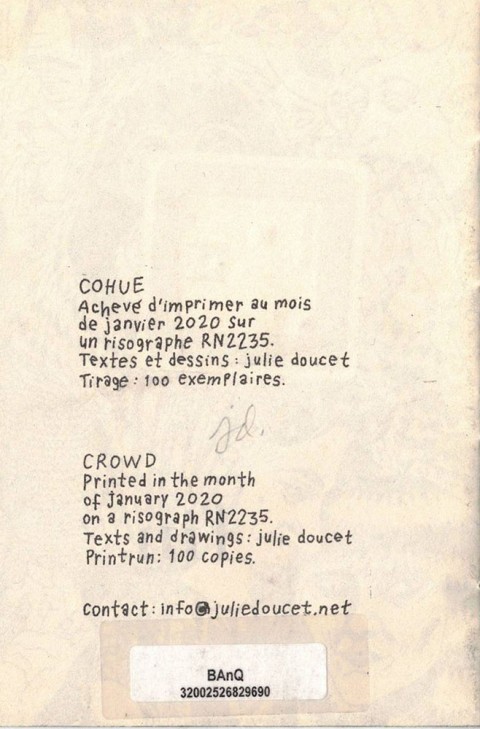 COHUE
Achevé d'imprimer au mois
de janvier 2020 sur
un risographe RN2235.
Textes et dessins : julie doucet
Tirage : 100 exemplaires.
jd.
CROWD
Printed in the month
of january 2020
on a risograph RN2235.
Texts and drawings : julie doucet
Printrun: 100 copies.
contact : info@juliedoucet.net
BAnQ
32002526829690